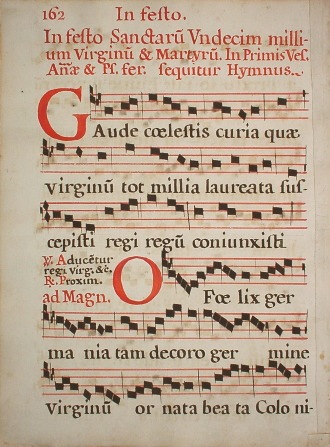 162 In festo.
In festo Sanctarũ Vndecim milli-
um Virginũ & Martyrũ. In Primis Ves.
Añæ & Ps. fer. sequitur Hymnus.
GAude cœlestis curia quæ
virginũ tot millia laureata sus-
cepisti regi regũ coniunxisti
℣. Aducẽtur
regi virg. &c.
℟. Proxim.
ad Magn. O Fœ lix ger
ma nia tam decoro ger mine
Virginũ or nata bea ta Colo ni-